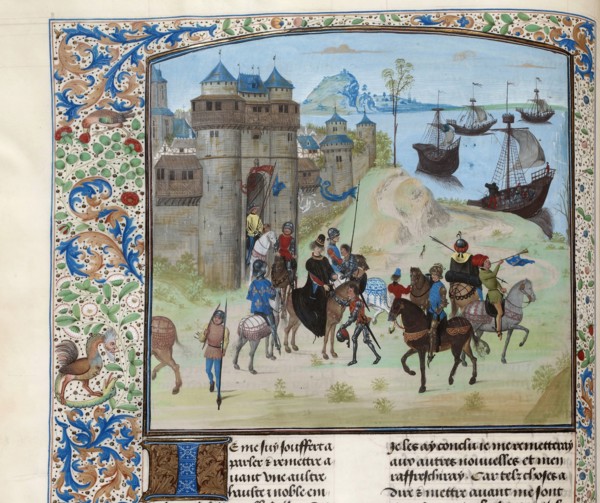 Je me suy souffert a
parler & remettre a
uant dune aultre
haulte & noble em
ie les ay conclu ie me remetteray
aux autres nouuelles et men
raffreschiray. Car telz choses a
dire & mettre auant me sont